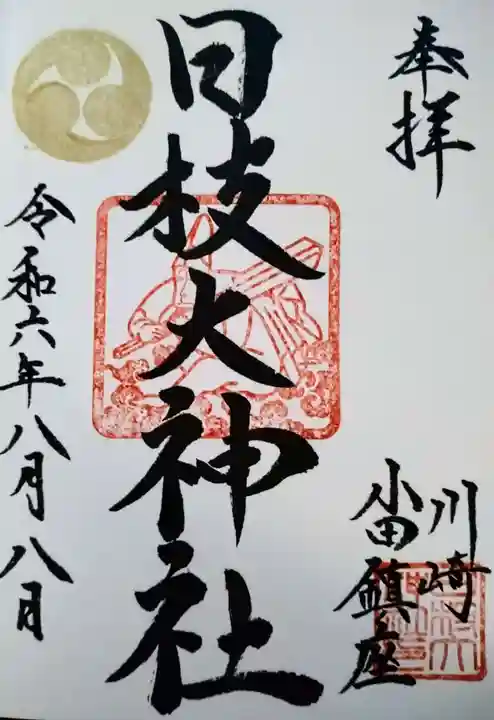 奉拝
川崎
小田鎮座
日枝大神社
令和六年八月八日